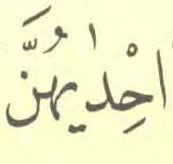 اِحْدٰيهُنَّ